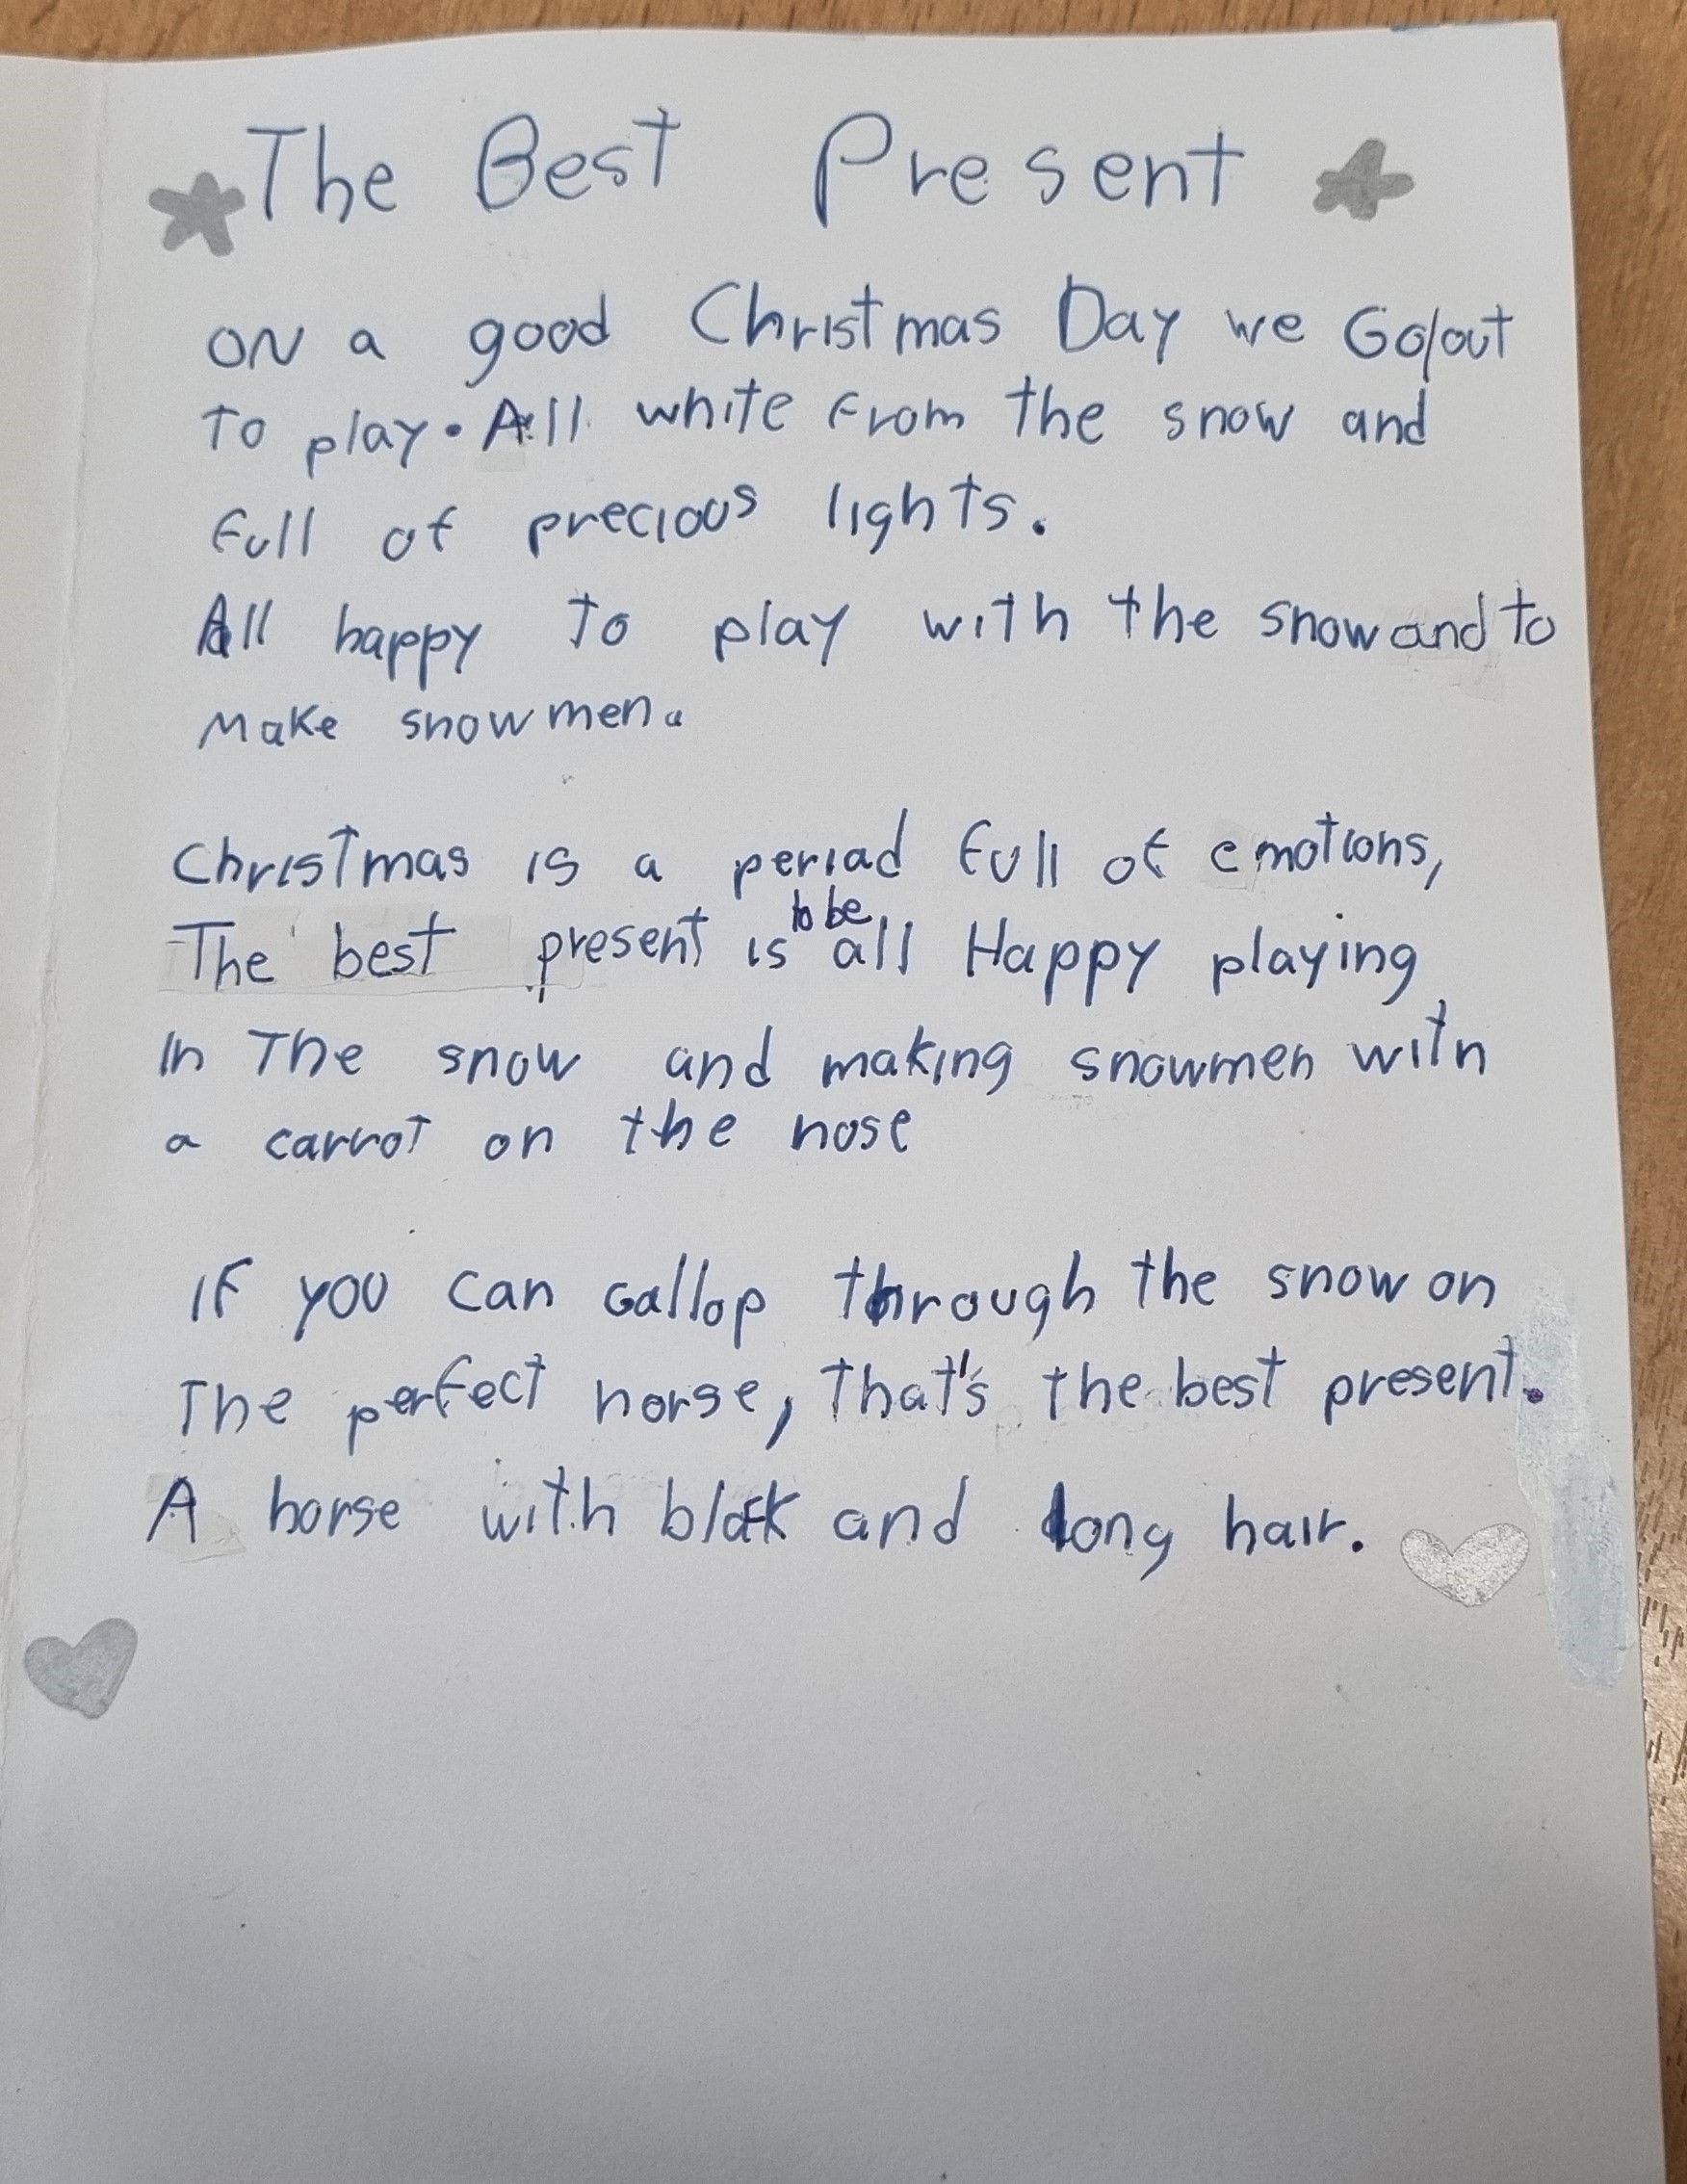 The Best Present
ON a good Christmas Day we Go/out
To play. All white from the snow and
full of precious lights.
All happy to play with the snow and to
Make snowmen.
Christmas is a periad full of emotions,
The best present is to be all Happy playing
In The snow and making snowmen with
a carrot on the nose
IF you can Gallop through the snow on
The perfect horse, That's the best present.
A horse with black and long hair.